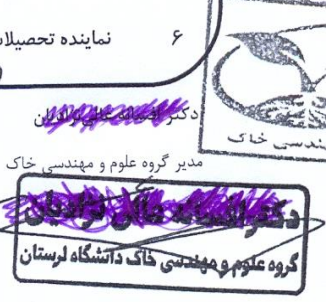 ۶ نماینده تحصیلا
دکتر
ندسی خاک
مدیر گروه علوم و مهندسی خاک
دکتر
گروه علوم و مهندسی خاک دانشگاه لرستان